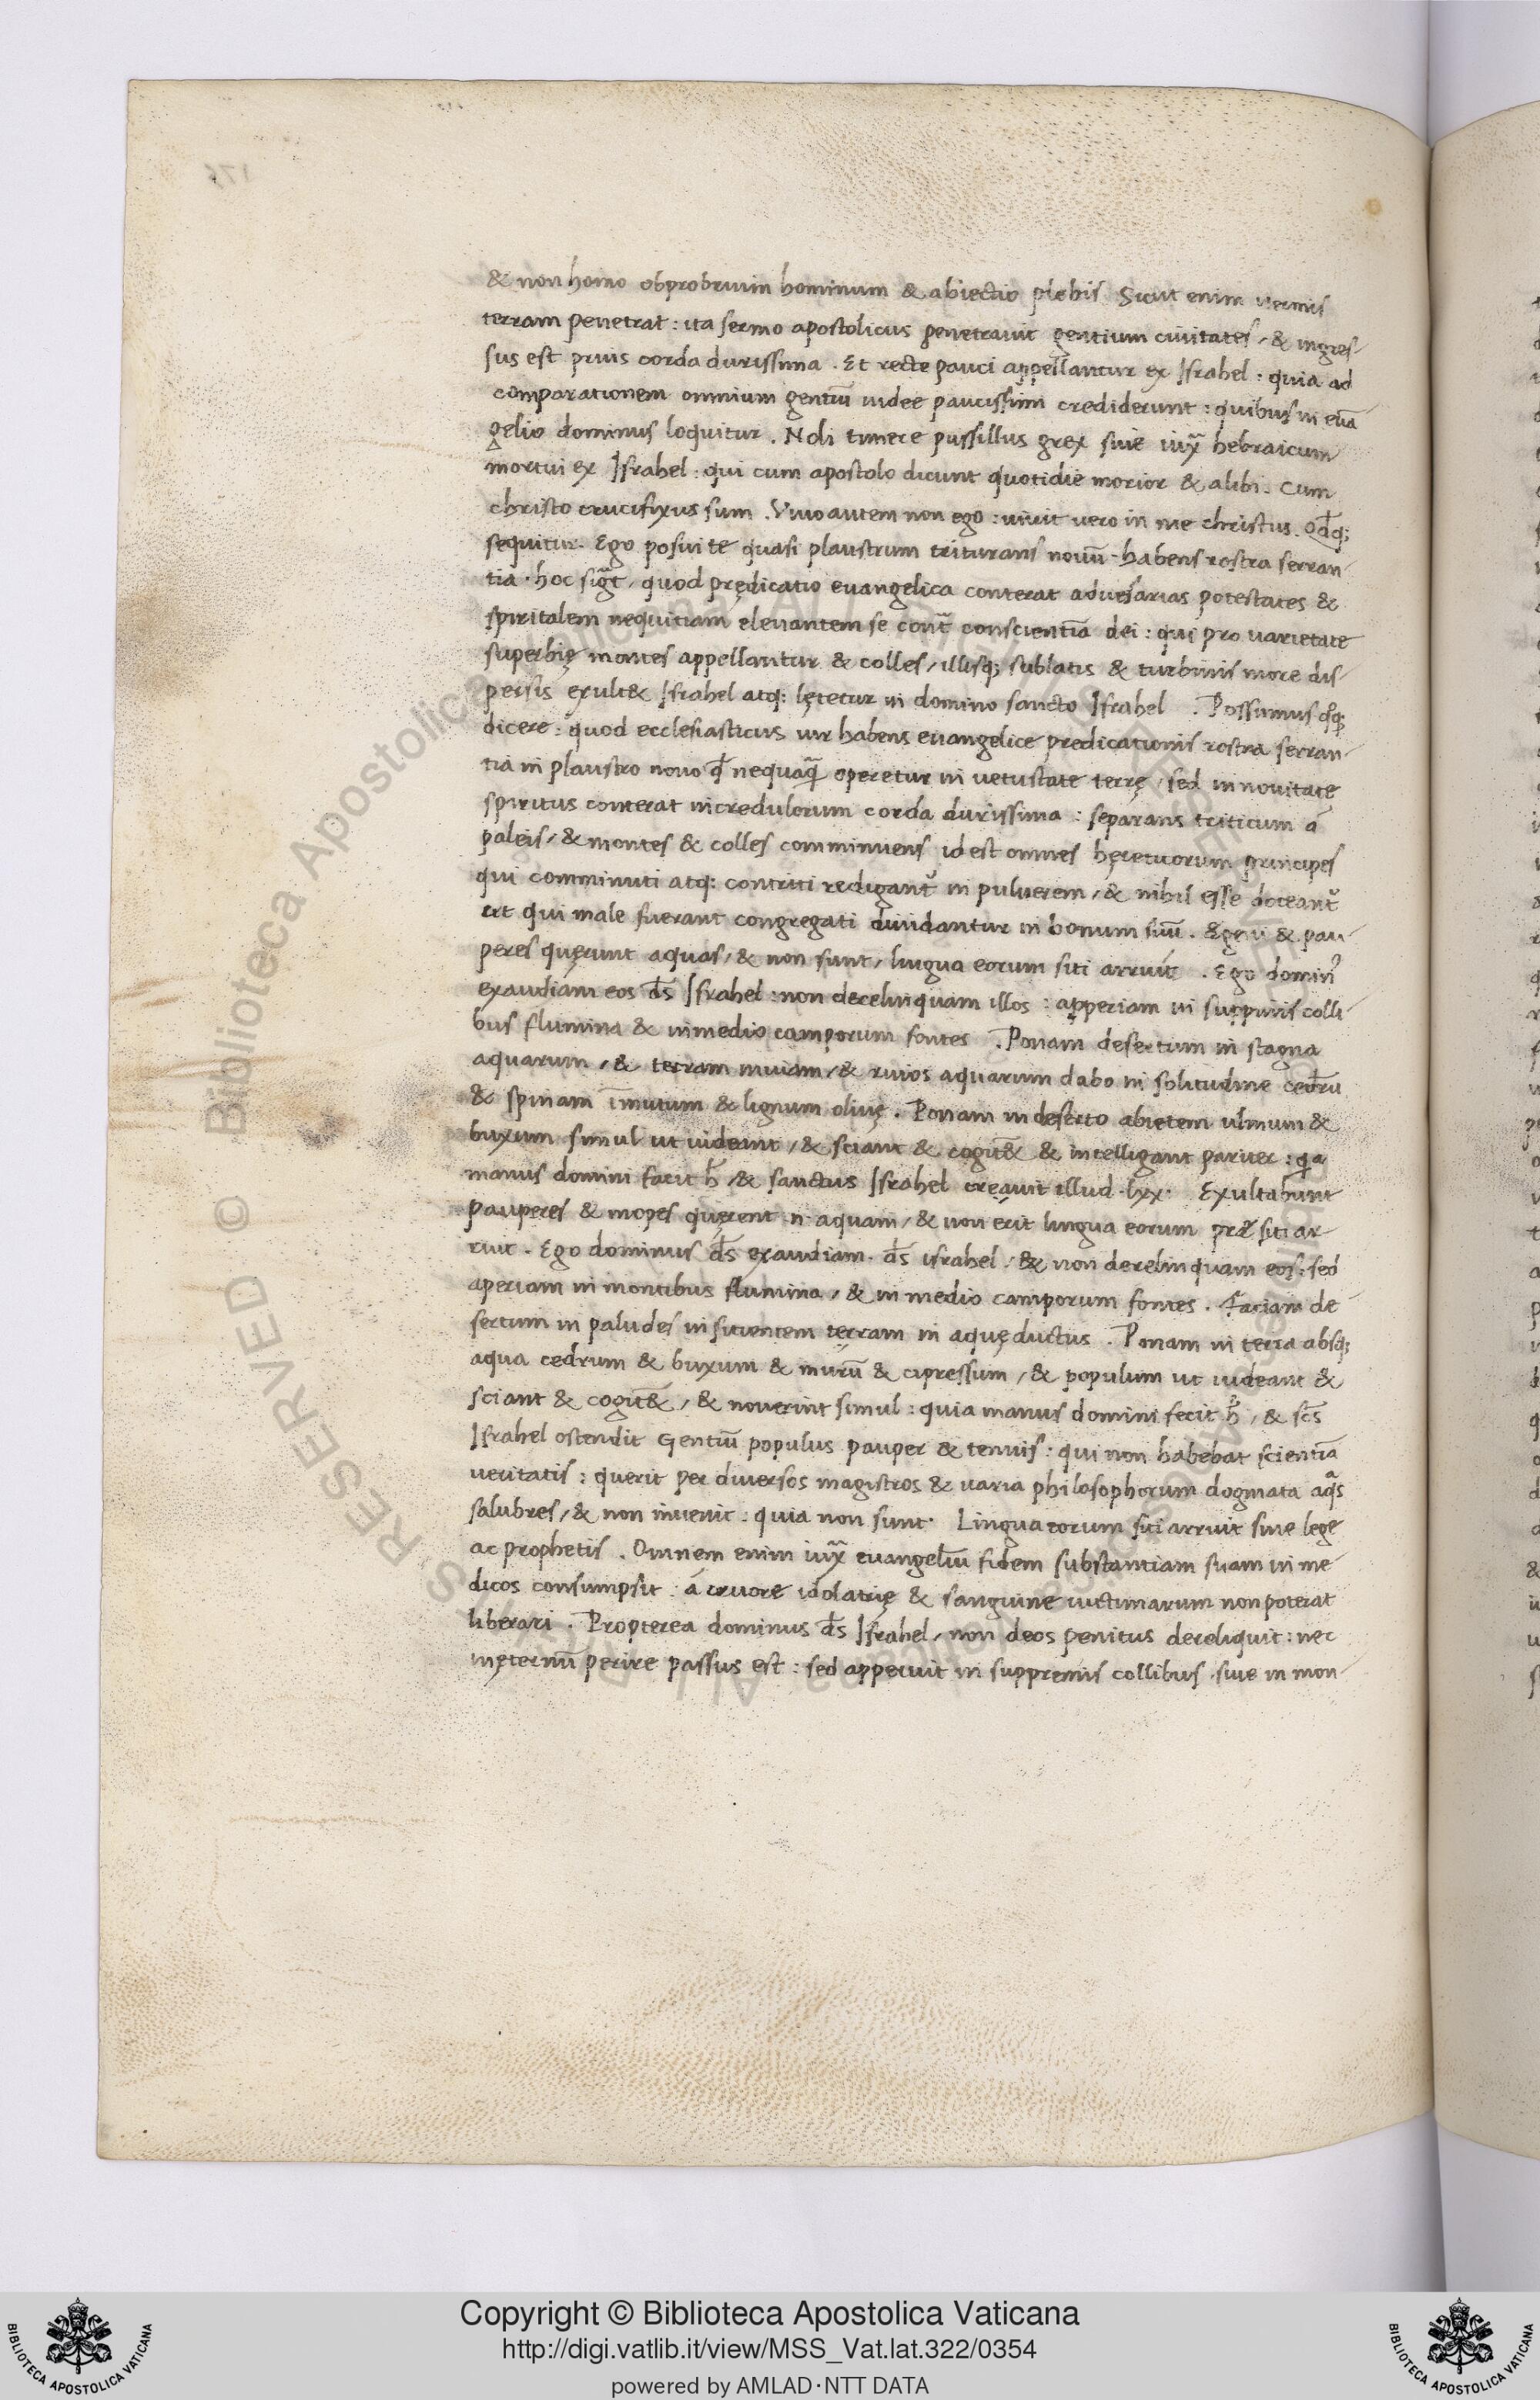 & non homo obprobrium hominum & abiectio plebis Sicut enim uermis
terram penetrat : ita sermo apostolicus penetrauit gentium ciuitates / & ingres-
sus est prius corda durissima . Et recte pauci appellantur ex Israhel : quia ad
comparationem omnium gentiū iudee paucissimi crediderunt : quibus in euā
gelio dominus loquitur . Noli timere pussillus grex siue iux̄ hebraicum
mortui ex Israhel : qui cum apostolo dicunt quotidie morior & alibi . Cum
christo crucifixus sum . Viuo autem non ego : uiuit uero in me christus . Qđq;
sequitur . Ego posui te quasi plaustrum triturans nouū . habens rostra serran-
tia . hoc sigt̄ / quod prędicatio euangelica conterat aduersarias potestates &
spiritalem nequitiam eleuantem se cont̄ conscientiā dei : qui pro uarietate
superbię montes appellantur & colles / illisq; sublatis & turbinis more dis-
persis exult& Israhel atq; lętetur in domino sancto Israhel . Possumus qq;
dicere : quod ecclesiasticus uir habens euangelice predicationis rostra serran-
tia in plaustro nouo q̄ nequaq̄ operetur in uetustate terrę / sed in nouitate
spiritus conterat incredulorum corda durissima : separans triticum á
paleis / & montes & colles comminuens id est omnes hęreticorum principes
qui comminuti atq; contriti redigant᷑ in puluerem / & nihil esse doceant᷑
ut qui male fuerant congregati diuidantur in bonum suū . Egeni & pau-
peres quęrunt aquas / & non sunt / lingua eorum siti arruit . Ego domin᾽
exaudiam eos d̄s Israhel : non derelinquam illos : apperiam in suppinis colli-
bus flumina & in medio camporum fontes . Ponam desertum in stagna
aquarum / & terram inuiam / & riuos aquarum dabo in solitudine cedrū
& spinam & lignum oliuę . Ponam in deserto abietem ulmum &
buxum simul ut uideant / & sciant & cogit̄& & intelligant pariter : qa
manus domini facit h̄ / & sanctus Israhel creauit illud . lxx . Exultabunt
pauperes & inopes quęrent .n. aquam / & non erit lingua eorum præ siti ar-
ruit . Ego dominus d̄s exaudiam . d̄s israhel / & non derelinquam eos : sed
aperiam in montibus flumina / & in medio camporum fontes . Faciam de-
sertum in paludes in sitientem terram in aquęductus . Ponam in terra absq;
aqua cedrum & buxum & & cipressum / & populum ut uideant &
sciant & cogit̄& / & nouerint simul : quia manus domini fecit h̄ / & sc̄s
Israhel ostendit Gentiū populus pauper & tenuis : qui non habebat scientiā
ueritatis : querit per diuersos magistros & uaria philosophorum dogmata aqs
salubres / & non inuenit : quia non sunt . Lingua eorum siti arruit siue lege
ac prophetis . Omnem enim iux̄ euangeliū fidem substantiam suam in me-
dicos consumpsit : á cruore idolatrię & sanguine uictimarum non poterat
liberari . Propterea dominus d̄s Israhel / non deos penitus dereliquit : nec
inęternū perire passus est : sed apperuit in suppremis collibus siue in mon-
Copyright © Biblioteca Apostolica Vaticana
http://digi.vatlib.it/view/MSS_Vat.lat.322/0354
powered by AMLAD·NTT DATA
BIBLIOTECA APOSTOLICA VATICANA
BIBLIOTECA APOSTOLICA VATICANA